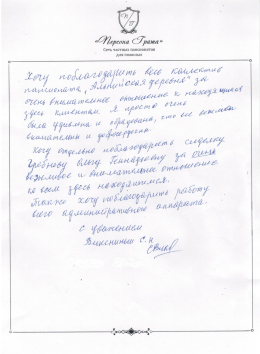 «Первая Гратта»
Сеть частных пансионатов
для пожилых
Хочу поблагодарить весь коллектив
пансионата „Альпийская деревня" за
очень внимательное отношение к находящимся
здесь клиентам. Я просто очень
была удивлена и обрадована, что все вежливы
внимательны и доброжелательны.
Хочу отдельно поблагодарить сиделку
Ольгу Геннадьевну за очень
вежливое и внимательное отношение
ко всем здесь находящимся.
Также хочу поблагодарить работу
всего административного аппарата.
С уважением
С. И.